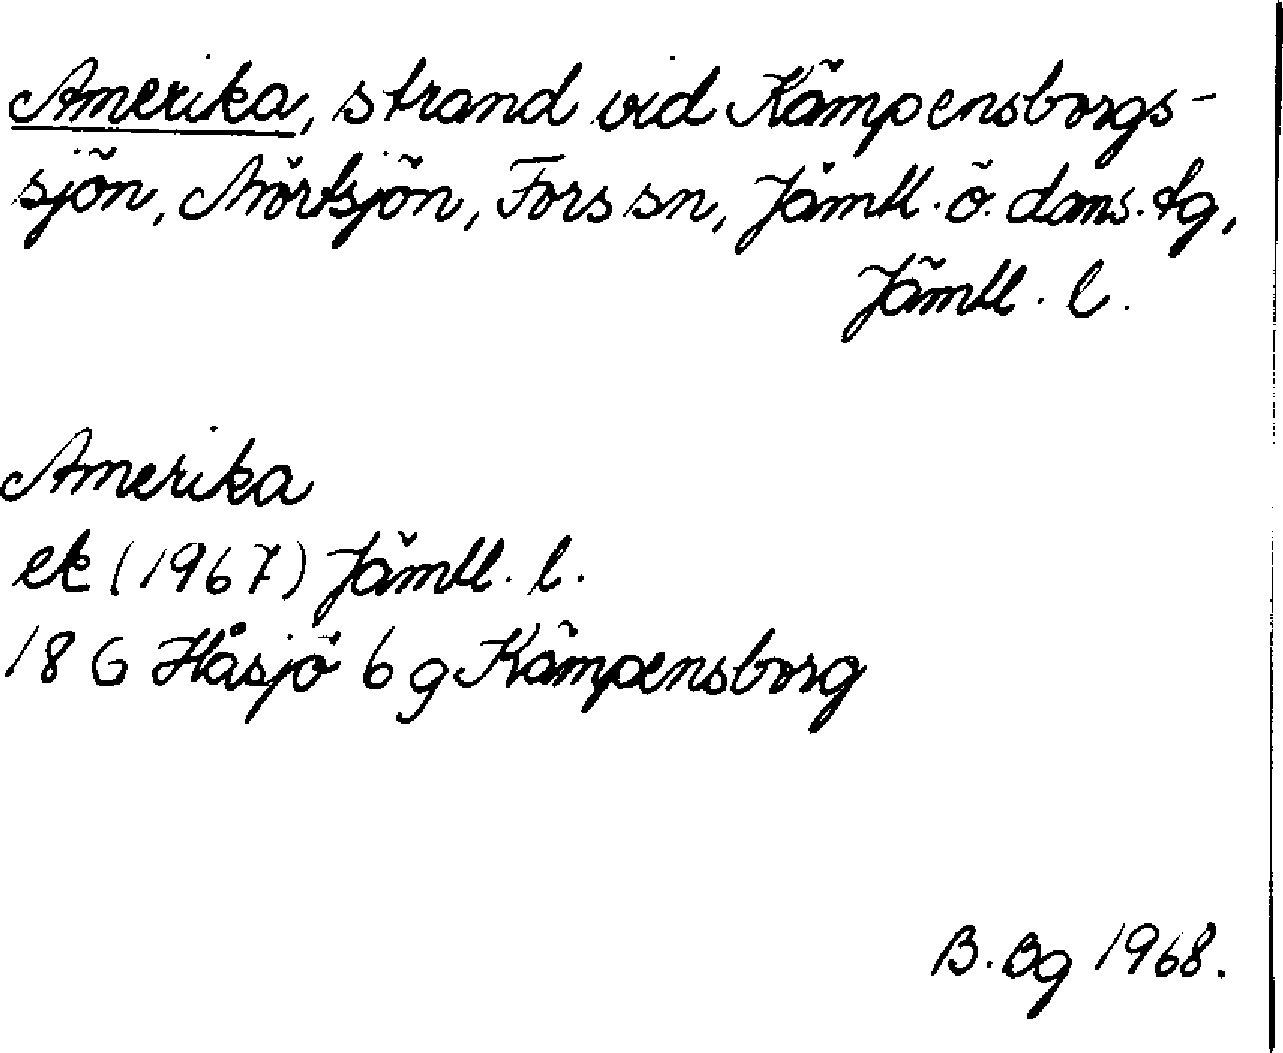 Amerika, strand vid Kämpensborgs-
sjön, Mörtsjön, Fors sn, Jämtl. ö. doms. tg,
Jämtl. l.
Amerika
ek (1967) Jämtl. l.
18 G Håsjö 6 g Kämpensborg
B. Bg 1968.